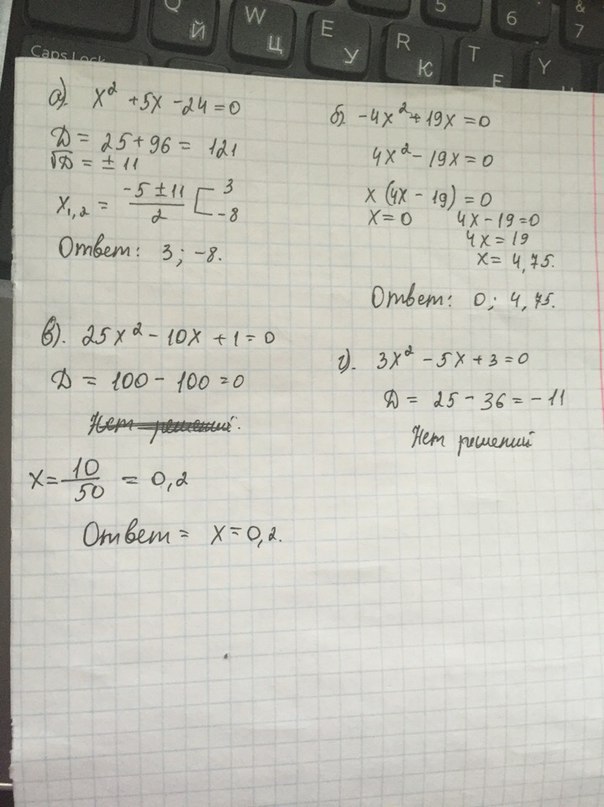 Q Й W Ц E У R К T Е Y 5 6 & 7
Caps Lock
а). x² + 5x - 24 = 0
Д = 25 + 96 = 121
√Д = ± 11
x₁,₂ = (-5 ± 11)/2 [ 3 -8
Ответ: 3; -8.
б). -4x² + 19x = 0
4x² - 19x = 0
x (4x - 19) = 0
x = 0 4x - 19 = 0
4x = 19
x = 4,75.
Ответ: 0; 4,75.
в). 25x² - 10x + 1 = 0
Д = 100 - 100 = 0
Нет решений.
x = 10/50 = 0,2
Ответ = x = 0,2.
г). 3x² - 5x + 3 = 0
Д = 25 - 36 = -11
Нет решений